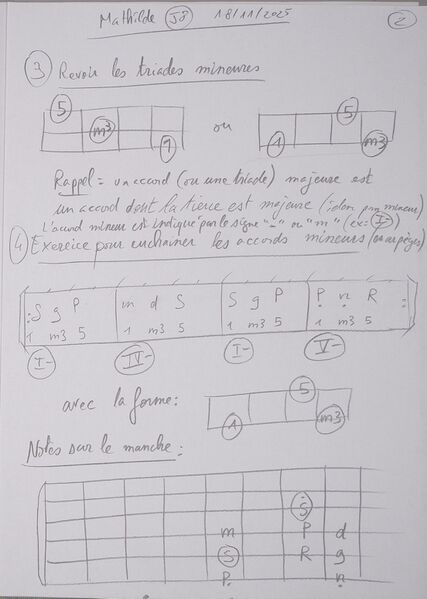 Mathilde J8 18/11/2025 2
3 Revoir les triades mineures
5 5
m3 ou
1 1 m3
Rappel = un accord (ou une triade) majeure est
un accord dont la tierce est majeure (idem pour mineur)
L'accord mineur est indiqué par le signe "-" ou "m" (ex: I-)
4 Exercice pour enchainer les accords mineurs (en arpèges)
: S g P m d S S g P P n R :
1 m3 5 1 m3 5 1 m3 5 1 m3 5
I- IV- I- V-
avec la forme: 5
1 m3
Notes sur le manche:
S
m P d
S R g
P n